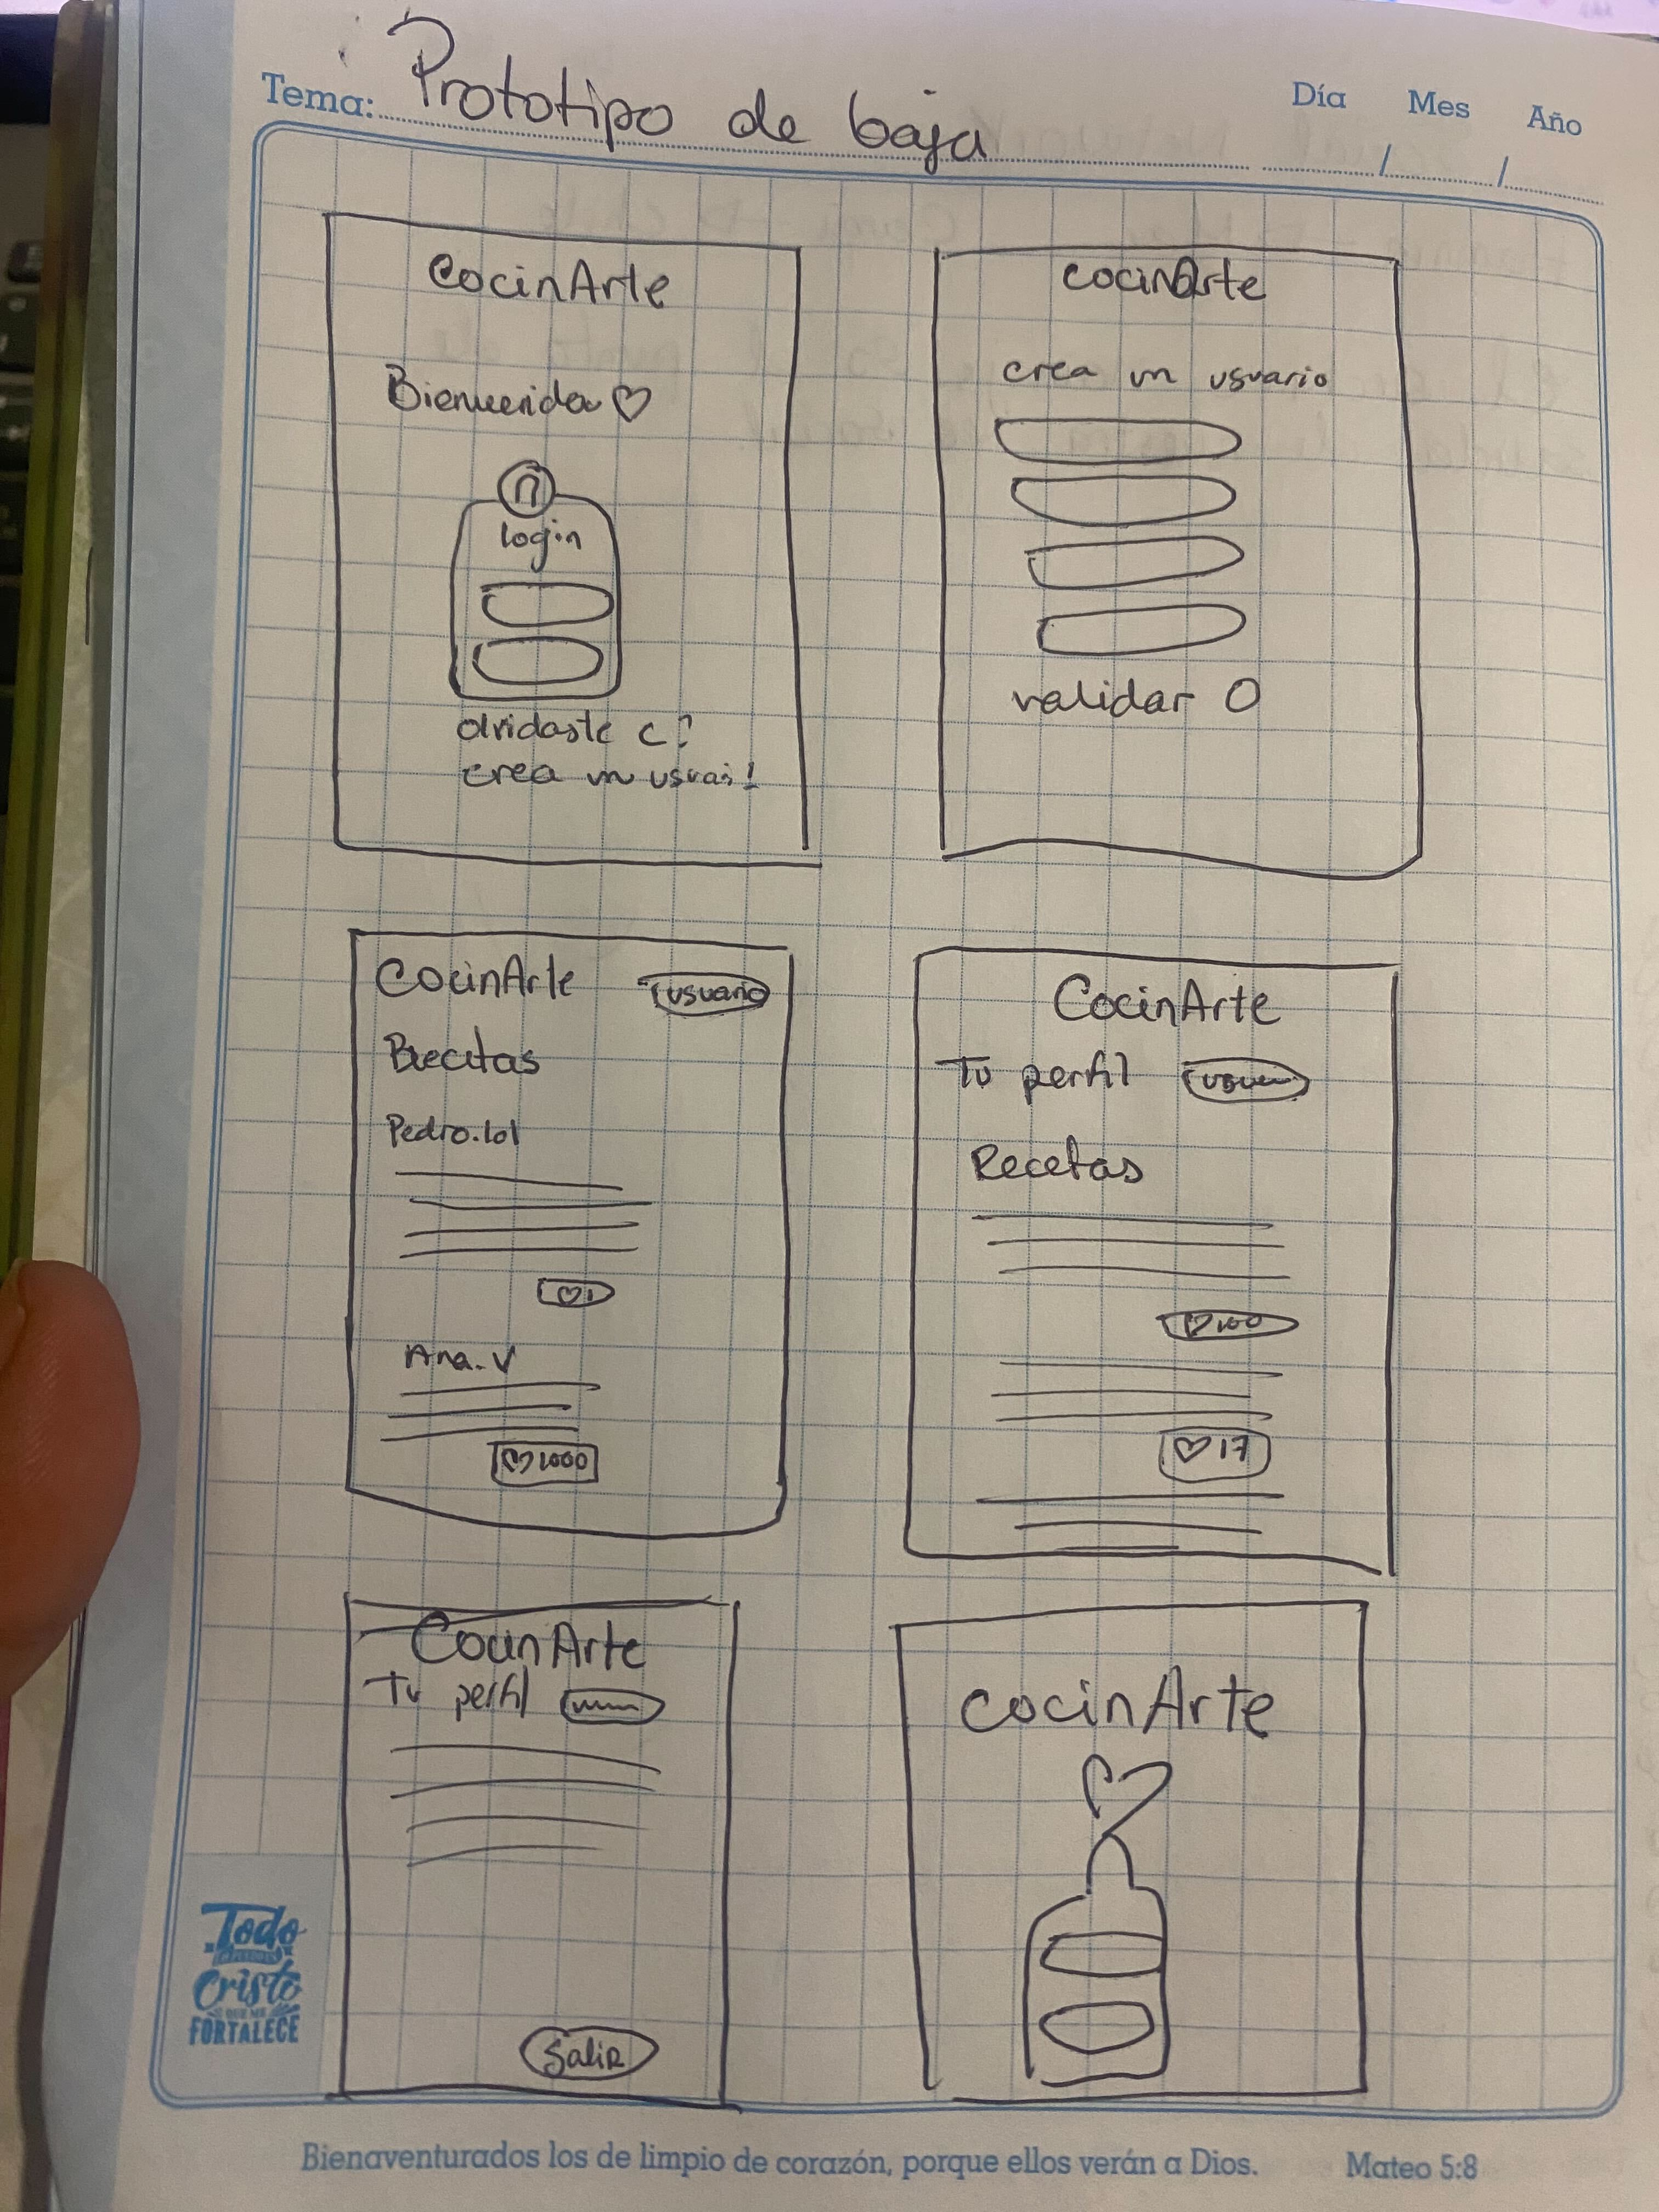 Tema: Prototipo de baja
Día Mes Año
/ /
CocinArte
Bienvenida ♡
login
olvidaste c?
crea un usuai!
cocinArte
crea un usuario
validar O
CocinArte
usuario
Recetas
Pedro.lol
♡1
Ana.V
♡1000
CocinArte
Tu perfil
Recetas
♡100
♡17
CocinArte
Tu perfil
Salir
cocinArte
Todo
Cristo
QUE ME
FORTALECE
Bienaventurados los de limpio de corazón, porque ellos verán a Dios. Mateo 5:8